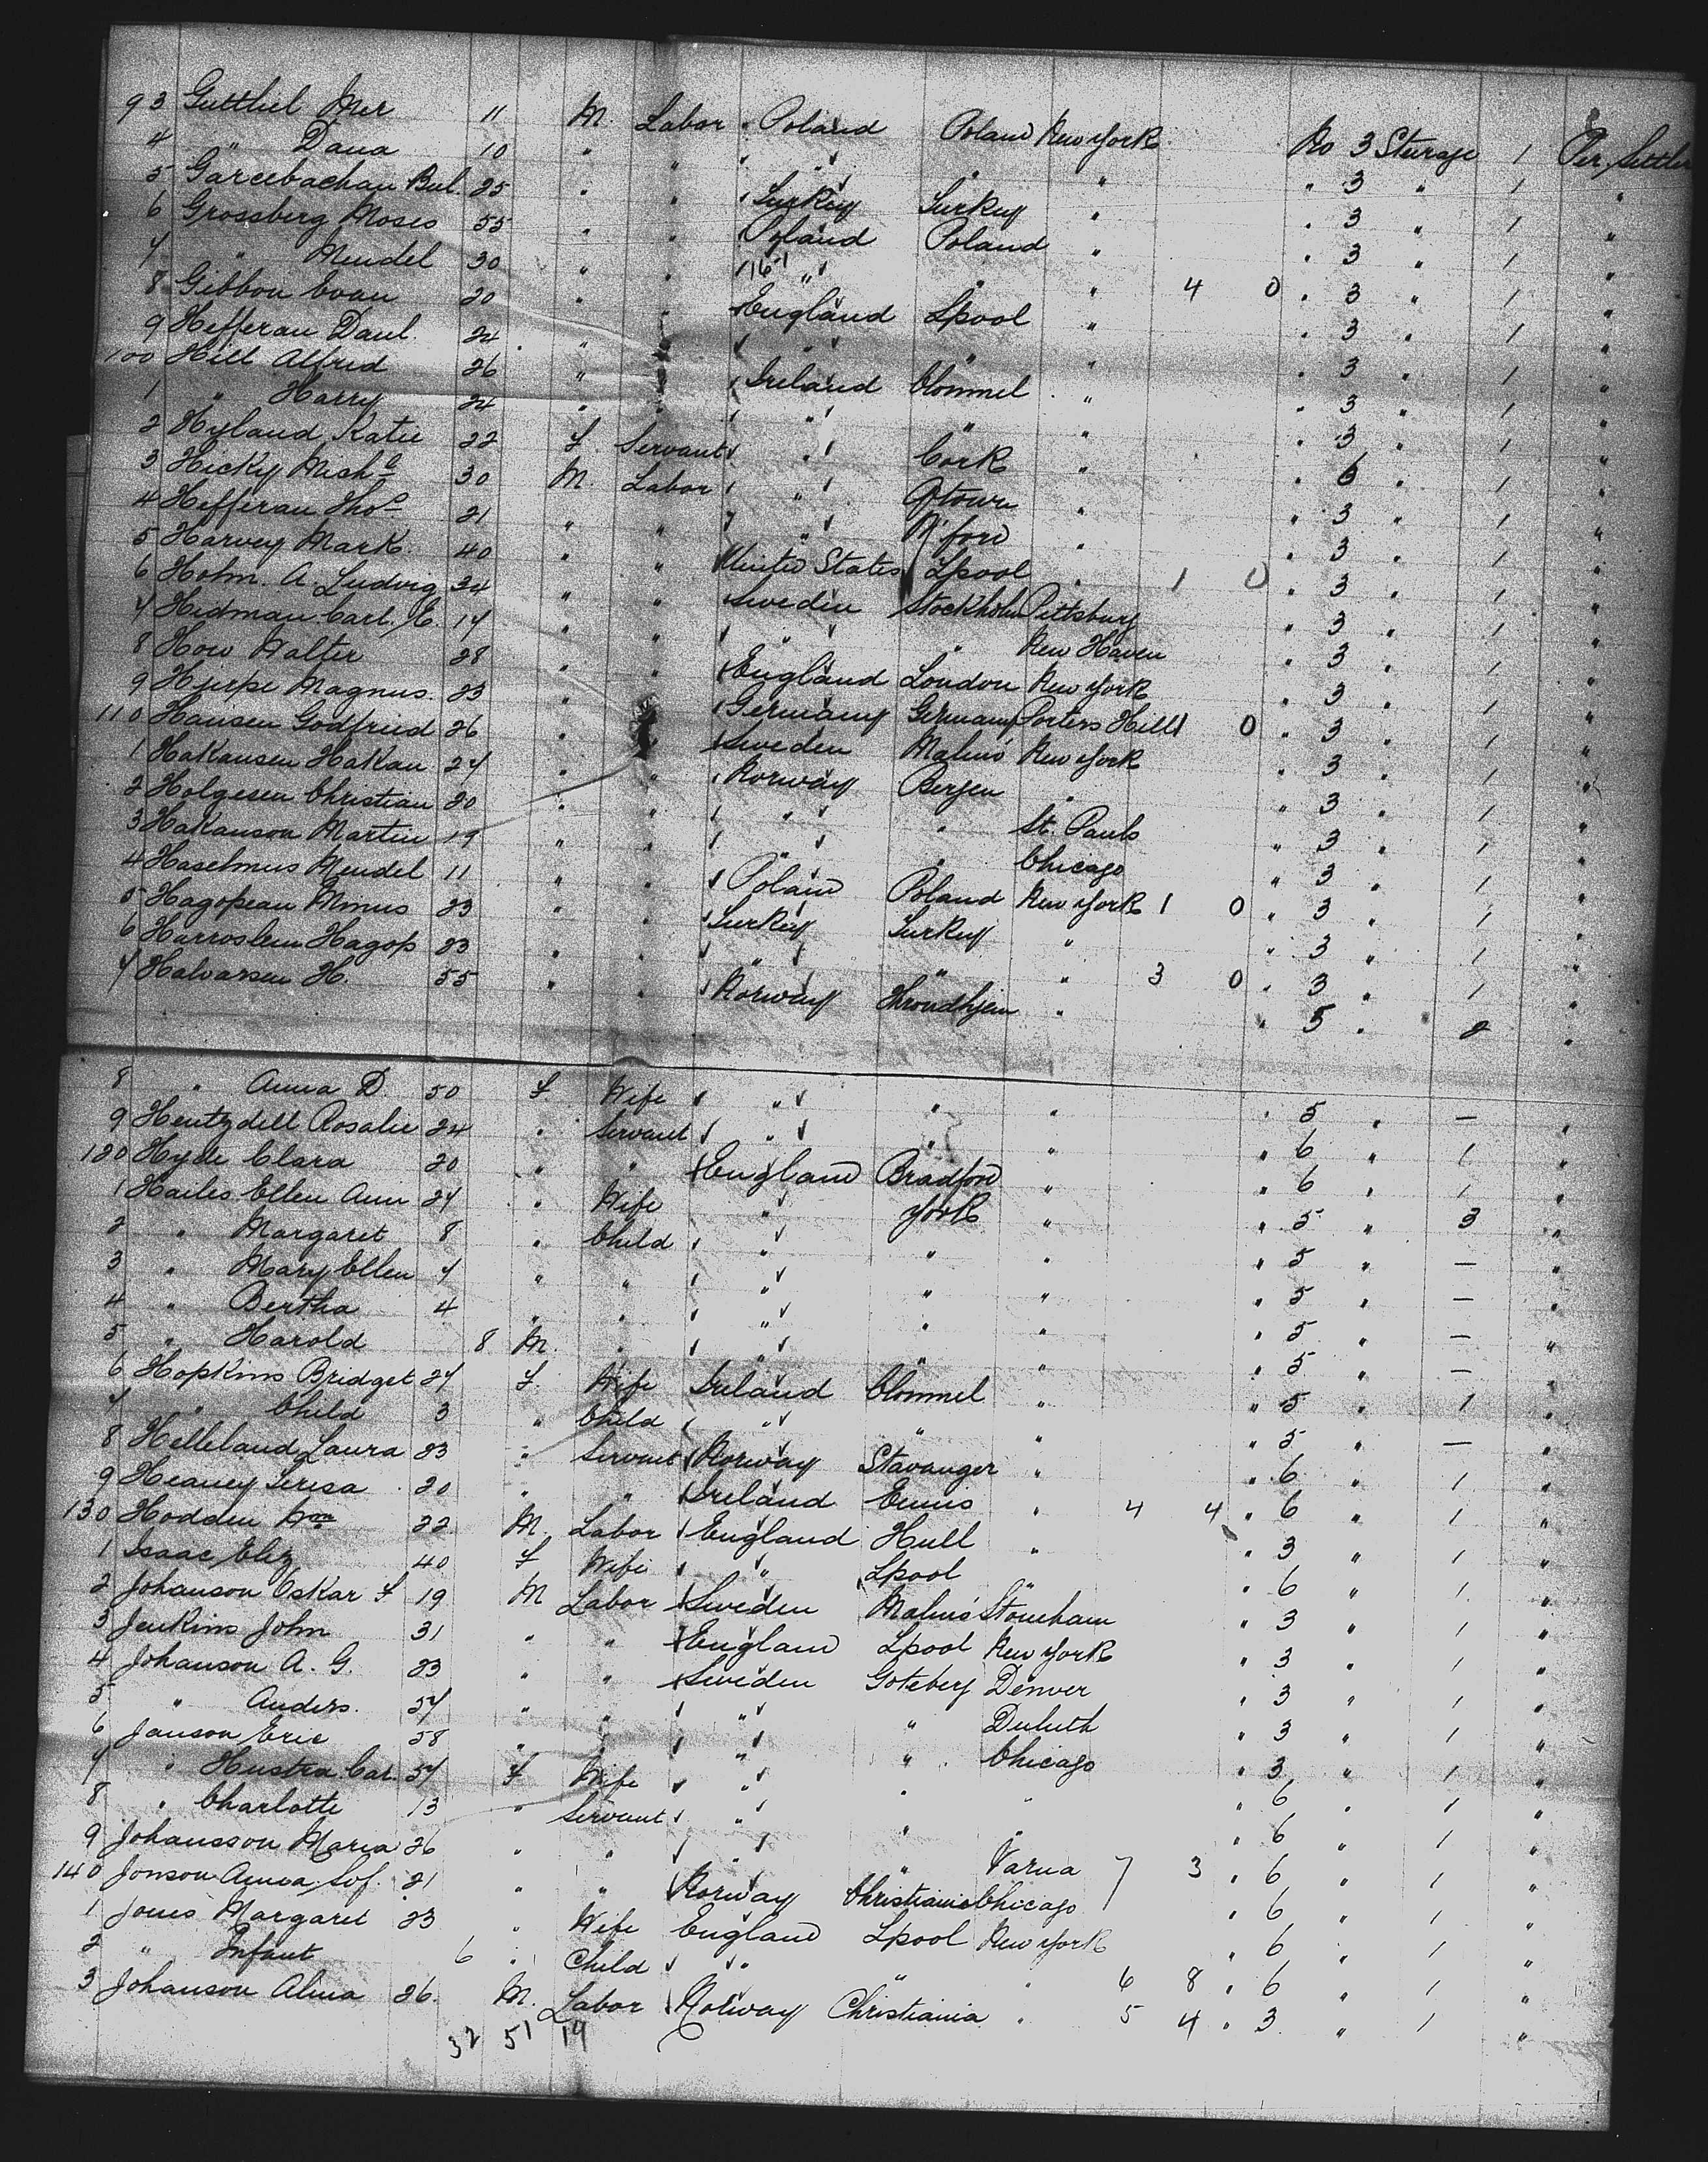 93 Gutthel Mer 11 M. Labor Poland Poland New York No 3 Sturage 1 Per. Settler
4 " Dana 10 " " " " " " 3 " 1 "
5 Garcebachau Bul. 25 " " Turkey Turkey " " 3 " 1 "
6 Grossberg Moses 55 " " Poland Poland " " 3 " 1 "
7 " Mendel 30 " " 16-1 " " " 4 0 " 3 " 1 "
8 Gibbon Evan 20 " " England Lpool " " 3 " 1 "
9 Hefferan Danl. 24 " " " " " " 3 " 1 "
100 Hill Alfred 26 " " Ireland Clonmel " " 3 " 1 "
1 " Harry 24 " " " " " " 3 " 1 "
2 Hyland Katie 22 F. Servant " Cork " " 6 " 1 "
3 Hicky Michl 30 M. Labor " Qtown " " 3 " 1 "
4 Hefferan Thos 21 " " " W'ford " " 3 " 1 "
5 Harvey Mark. 40 " " United States Lpool " 1 0 " 3 " 1 "
6 Holm. A. Ludvig 34 " " Sweden Stockholm Pittsburg " 3 " 1 "
7 Hedman Carl. E. 17 " " " " New Haven " 3 " 1 "
8 How Walter 28 " " England London New York " 3 " 1 "
9 Hjerpe Magnus. 23 " " Germany Germany Porters Hill 1 0 " 3 " 1 "
110 Hansen Godfried 26 " " Sweden Malmö New York " 3 " 1 "
1 Hakansen Hakan 27 " " Norway Bergen " " 3 " 1 "
2 Holgesen Christian 20 " " " " St. Pauls " 3 " 1 "
3 Hakanson Martin 19 " " " " Chicago " 3 " 1 "
4 Haselmus Mendel 11 " " Poland Poland New York 1 0 " 3 " 1 "
5 Hagopean Minus 23 " " Turkey Turkey " " 3 " 1 "
6 Harroslem Hagop 23 " " " " " 3 0 " 3 " 1 "
7 Halvarsen H. 55 " " Norway Throndhjem " " 5 " 2 "
8 " Anna D. 50 F. Wife " " " " 5 " — "
9 Hentzdell Rosalie 24 " Servant " " " " 6 " 1 "
120 Hyde Clara 20 " " England Bradford " " 6 " 1 "
1 Hailes Ellen Ann 27 " Wife " York " " 5 " 3 "
2 " Margaret 8 " Child " " " " 5 " — "
3 " Mary Ellen 7 " " " " " " 5 " — "
4 " Bertha 4 " " " " " " 5 " — "
5 " Harold 8 M. " " " " " 5 " — "
6 Hopkins Bridget 27 F. Wife Ireland Clonmel " " 5 " 1 "
7 " Child 3 " Child " " " " 5 " — "
8 Helleland Laura 23 " Servant Norway Stavanger " " 6 " 1 "
9 Heaney Teresa 20 " " Ireland Ennis " 4 4 " 6 " 1 "
130 Hodden Wm 22 M. Labor England Hull " " 3 " 1 "
1 Isaac Eliz 40 F Wife " Lpool " " 6 " 1 "
2 Johanson Oskar F 19 M Labor Sweden Malmö Stoneham " 3 " 1 "
3 Jenkins John 31 " " England Lpool New York " 3 " 1 "
4 Johanson A. G. 23 " " Sweden Goteberg Denver " 3 " 1 "
5 " Anders. 57 " " " " Duluth " 3 " 1 "
6 Janson Eric 58 " " " " Chicago " 3 " 1 "
7 " Hustra Car. 57 F Wife " " " " 6 " 1 "
8 " Charlotte 13 " Servant " " " " 6 " 1 "
9 Johansson Maria 26 " " " " Varna 7 3 " 6 " 1 "
140 Jonson Anna Sof. 21 " " Norway Christiania Chicago " 6 " 1 "
1 Jones Margaret 23 " Wife England Lpool New York " 6 " 1 "
2 " Infant 6 " Child " " " 6 8 " 6 " 1 "
3 Johanson Alma 26. M. Labor Norway Christiania " 5 4 " 3 " 1 "
32 51 19